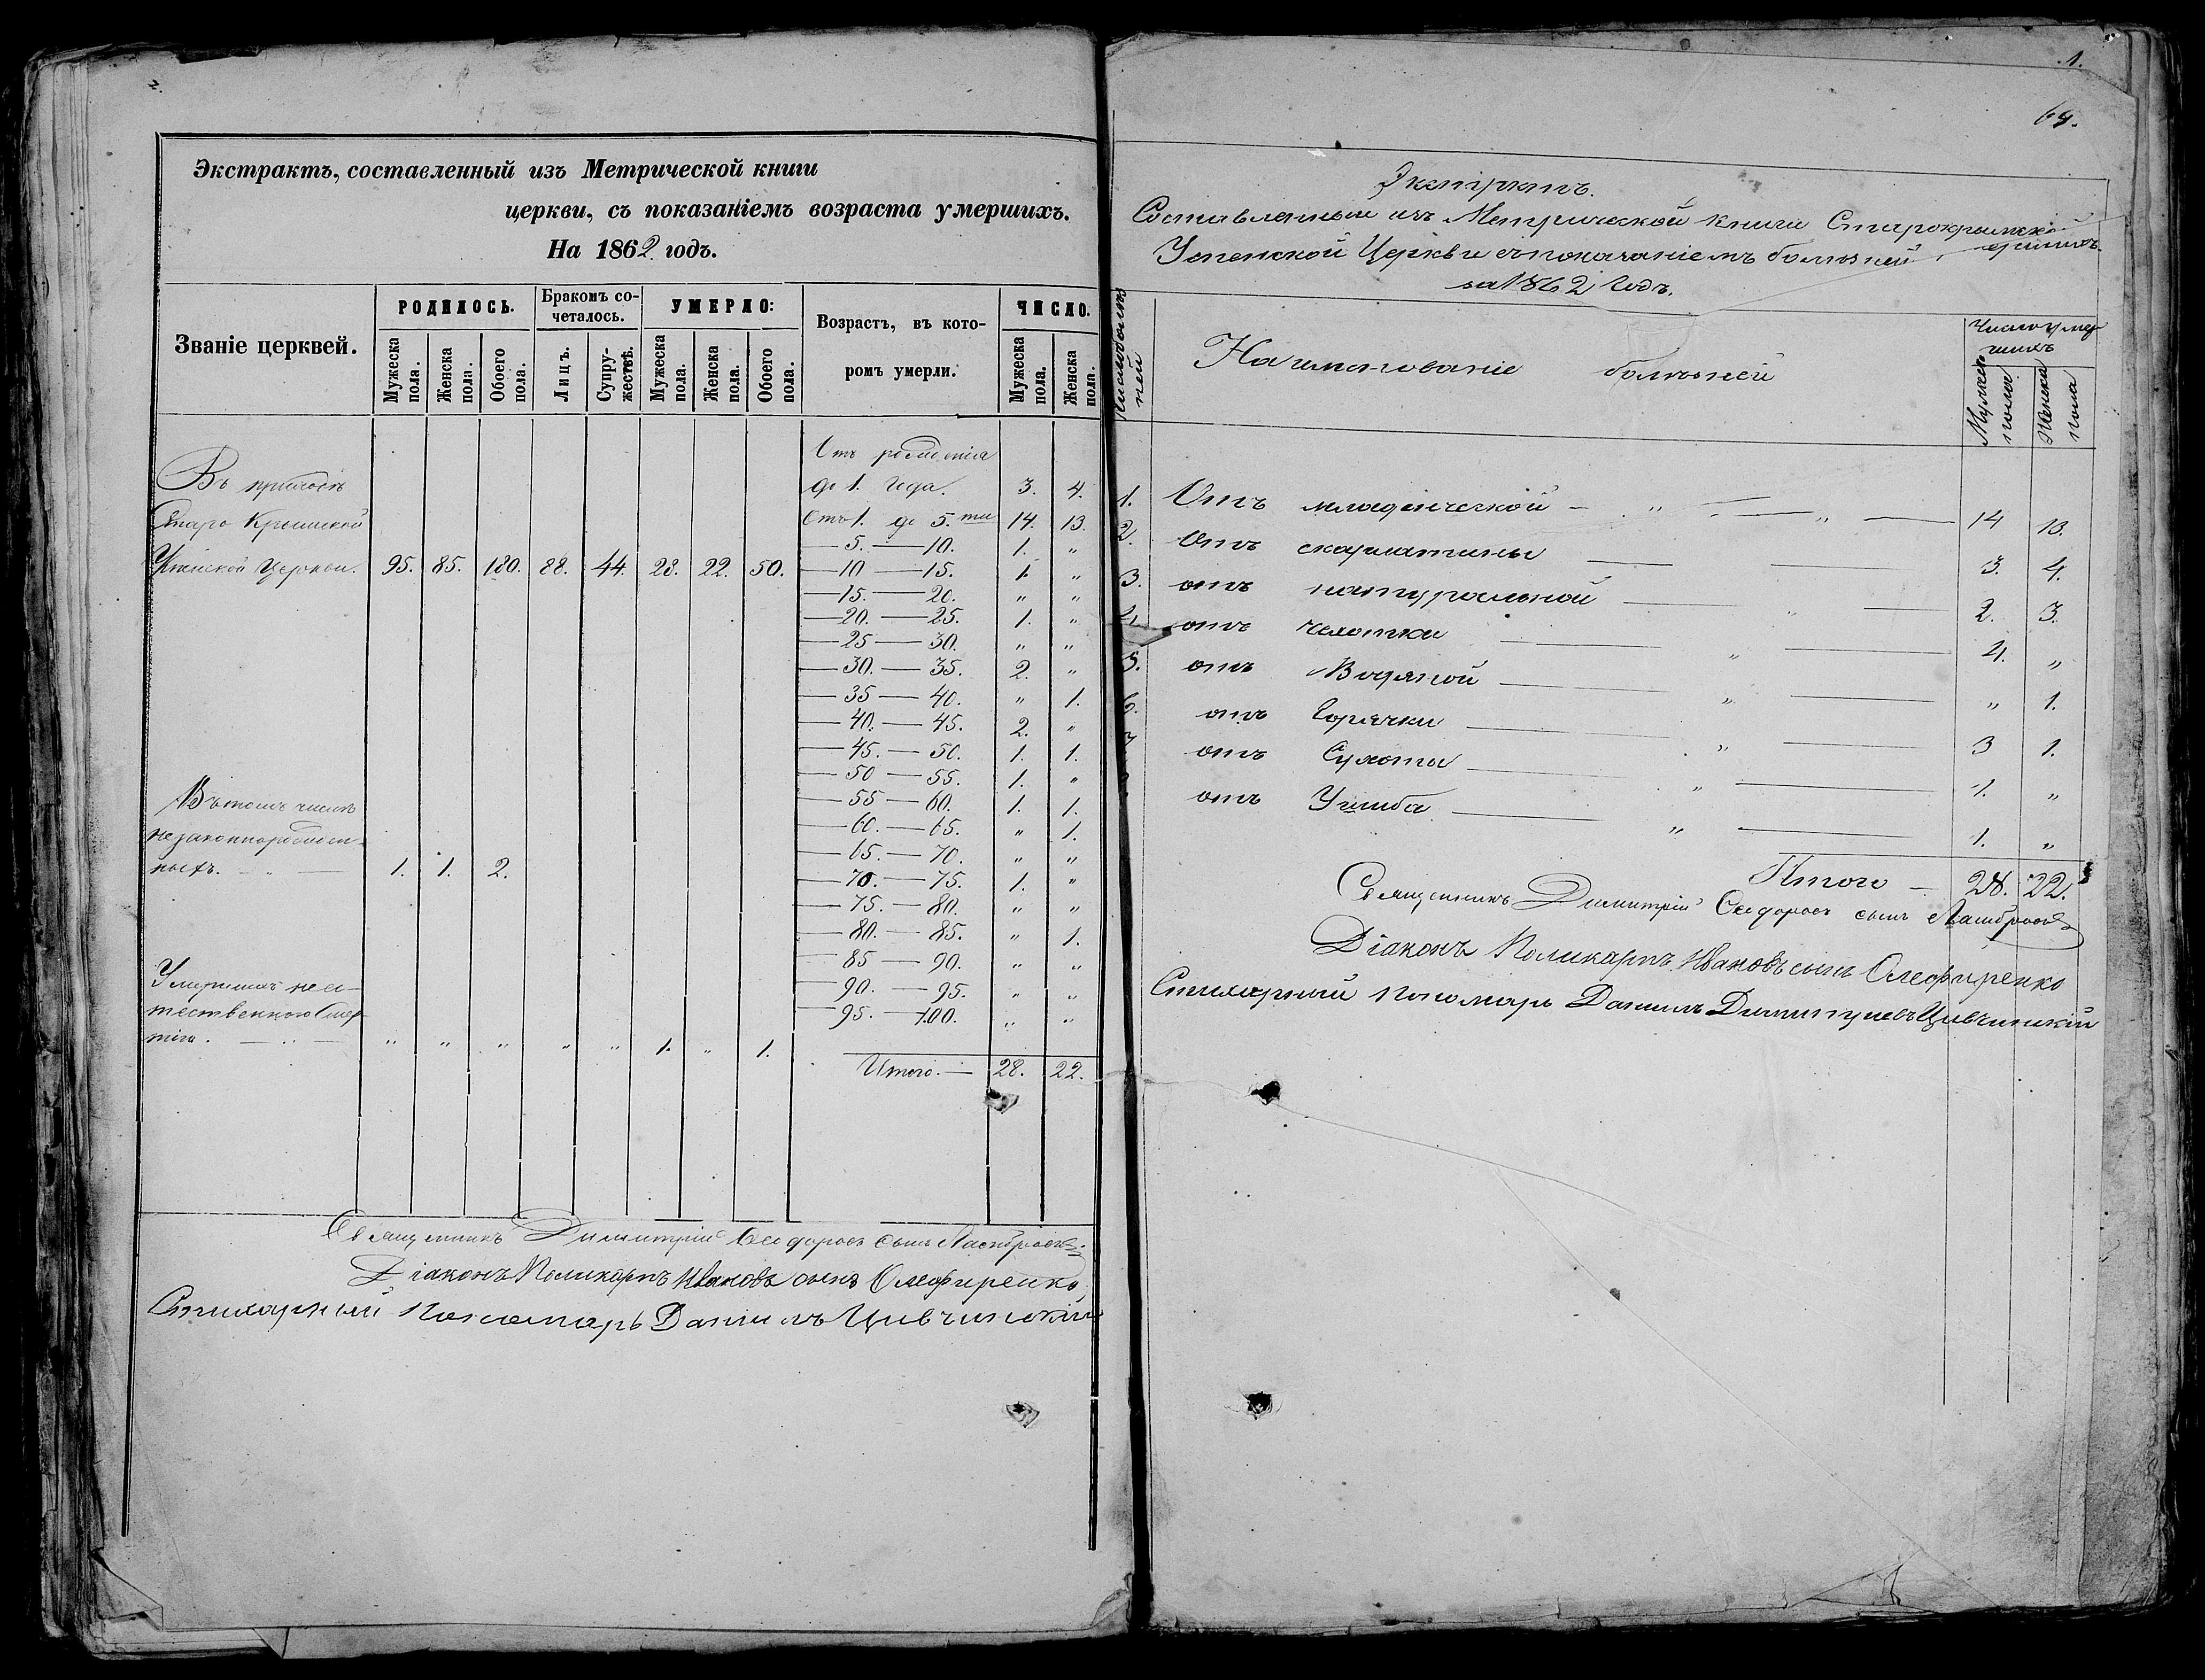 2.
Экстрактъ, составленный изъ Метрической книги
церкви, съ показаніемъ возраста умершихъ.
На 1862 годъ.
Званіе церквей.
РОДИЛОСЬ.
Бракомъ со-
четалось.
УМЕРЛО:
Возрастъ, въ кото-
ромъ умерли.
ЧИСЛО.
Мужеска пола.
Женска пола.
Обоего пола.
Лицъ.
Супру-
жествъ.
Мужеска пола.
Женска пола.
Обоего пола.
Мужеска пола.
Женска пола.
Въ приходѣ
Старо Крымской
Успенской Церкви. 95. 85. 180. 88. 44. 28. 22. 50.
Въ томъ числѣ
незаконнорожден-
ныхъ. — „ — 1. 1. 2.
Умершихъ неес-
тественною смер-
тію. — „ — „ „ „ „ „ 1. „ 1.
Отъ рожденія
до 1. года. 3. 4.
Отъ 1. до 5.ти 14. 13.
— 5. — 10. 1. „
— 10 — 15. 1. „
— 15. — 20. „ „
— 20. — 25. 1. „
— 25 — 30. „ „
— 30. — 35. 2. „
— 35 — 40. „ 1.
— 40. — 45. 2. „
— 45. — 50. 1. 1.
— 50 — 55. 1. „
— 55 — 60. 1. 1.
— 60. — 65. „ 1.
— 65. — 70. „ „
— 70. — 75. 1. „
— 75. — 80. „ „
— 80. — 85. „ 1.
— 85 — 90. „ „
— 90. — 95. „ „
— 95. — 100. „ „
Итого. — 28. 22.
Священникъ Димитрій Ѳеодоровъ сынъ
Діаконъ Поликарпъ Ивановъ сынъ Олефиренко
Стихарный Пономарь Даніилъ Цивчинскій
1.
69.
Экстрактъ.
Составленный изъ Метрической книги Старокрымской
Успенской Церкви съ показаніемъ болѣзней,
за 1862 Годъ.
Число болѣз-
ней
Наименованіе болѣзней
Число умер-
шихъ
Мужеска пола
Женска пола
1. Отъ младенческой — „ — „ — 14 13.
2. Отъ скарлатины — 3. 4.
3. отъ натуральной — „ — 2. 3.
4. отъ чахотки — „ — 4. „
5. отъ Водяной — „ — „ 1.
6. отъ Горячки — „ — 3 1.
7. отъ Сухоты — „ — 1. „
отъ Ушиба — „ — 1. „
Итого — 28. 22.
Священникъ Димитрій Ѳеодоровъ сынъ
Діаконъ Поликарпъ Ивановъ сынъ Олефиренко
Стихарный Пономарь Даніилъ Димитріевъ Цивчинскій